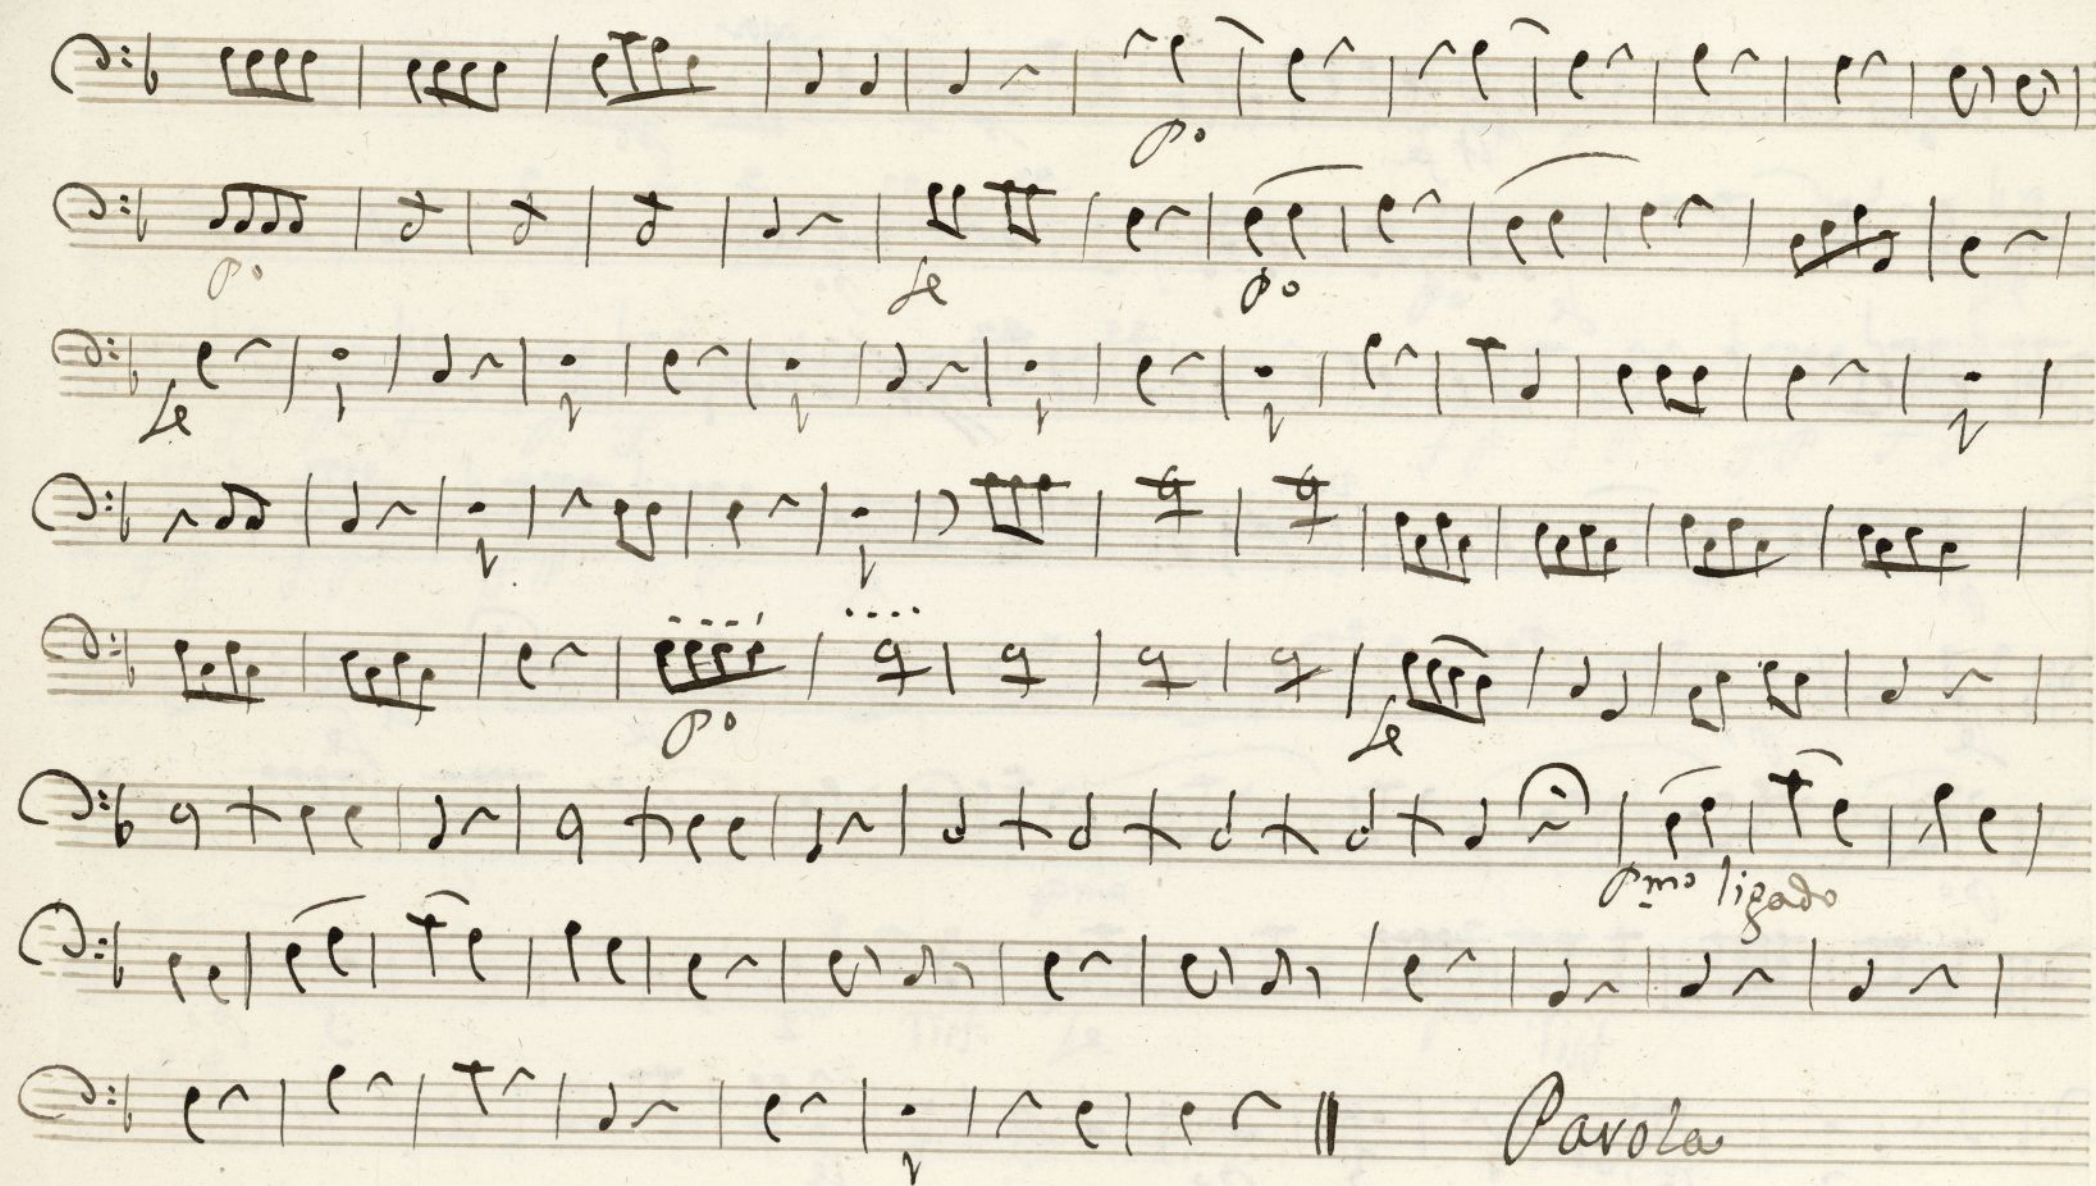 Po
Po fe Po
fe
Po fe
Pmo ligado
Parola